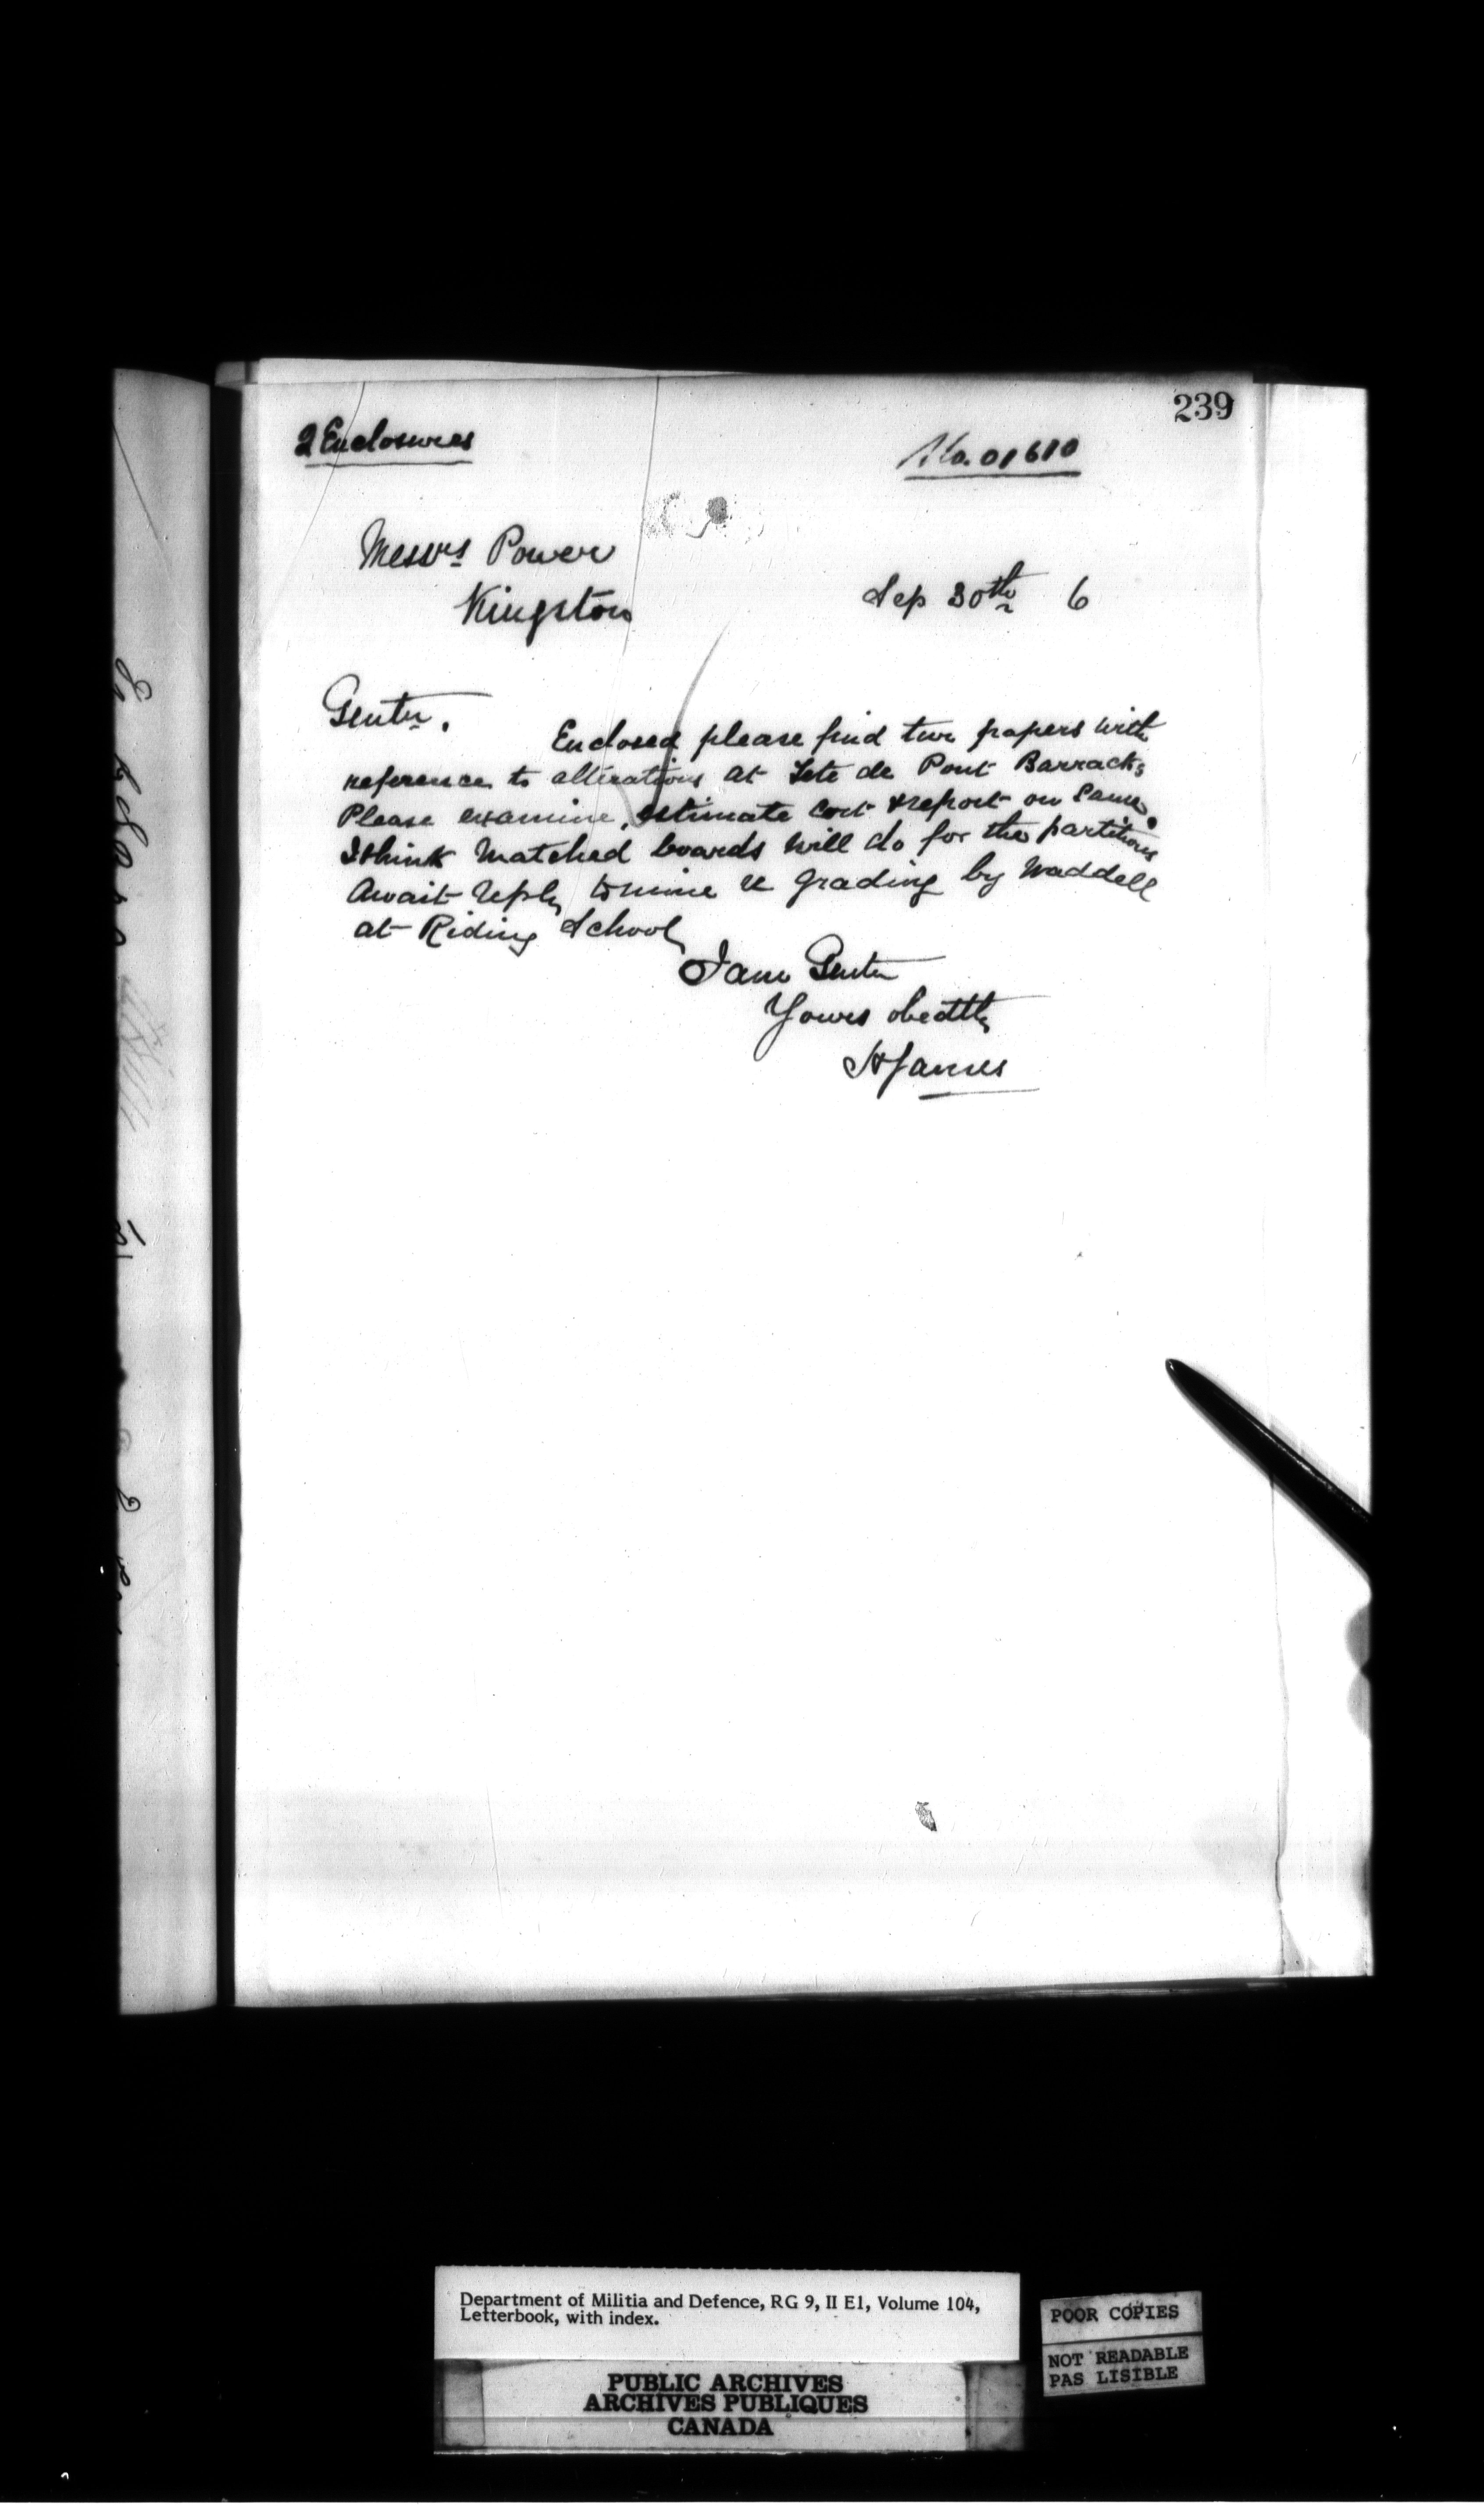 239
2 Enclosures
No. 01610
Messrs Power
Kingston
Sep 30th 6
Gentn.
Enclosed please find two papers with
reference to alterations at Tete de Pont Barracks
Please examine, estimate cost & report on same.
I think matched boards will do for the partitions
Await reply to mine re grading by Waddell
at Riding School
I am Gentn
Yours obedtly
H James
Department of Militia and Defence, RG 9, II E1, Volume 104,
Letterbook, with index.
PUBLIC ARCHIVES
ARCHIVES PUBLIQUES
CANADA
POOR COPIES
NOT READABLE
PAS LISIBLE